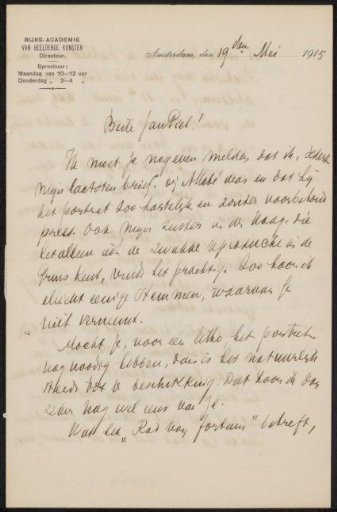 RIJKS-ACADEMIE
VAN BEELDENDE KUNSTEN
Directeur.
Spreekuur:
Maandag van 10—12 uur
Donderdag „ 2—4 „
Amsterdam, den 19den Mei 1915
Beste Jan Piet!
Ik moet je nog even melden dat ik, sedert
mijn laatsten brief, bij Allebé was en dat hij
het portret zoo hartelijk en zonder voorbehoud
prees. Ook mijn zusters in den Haag, die
het alleen uit de zwakke reproductie in de
Prins kent, vindt het prachtig. Zoo hoor ik
slechts eenige stemmen, waarvan je
niet verneemt.
Mocht je, voor een litho, het portret
nog noodig hebben, dan is het natuurlijk
steeds tot je beschikking. Dat hoor ik dan
zeker nog wel eens van je.
Wat het „Rad van fortuin" betreft,